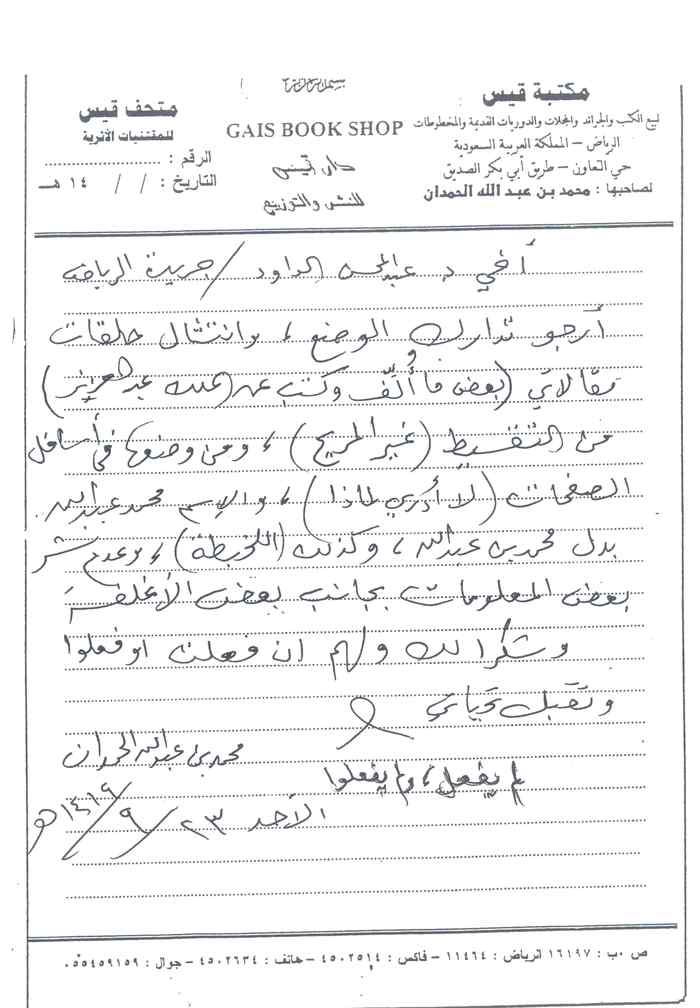 بسم الله الرحمن الرحيم
مكتبة قيس
لبيع الكتب والجرائد والمجلات والدوريات القديمة والمخطوطات
الرياض – المملكة العربية السعودية
حي التعاون – طريق أبي بكر الصديق
لصاحبها : محمد بن عبد الله الحمدان
GAIS BOOK SHOP
دار قيس
للنشر والتوزيع
متحف قيس
للمقتنيات الأثرية
الرقم : ....................
التاريخ :    /    /    ١٤ هـ
أخي د. عبدالمحسن الداود / جريدة الرياض
أرجو تدارك الوضع ، وانتشال حلقات
مقالاتي (بعض ما أُلّف وكتب عن الملك عبدالعزيز)
من التقسيط (غير المريح) ، ومن وضعها في أسافل
الصفحات (لا أدري لماذا) ، والإسم محمد عبدالله
بدل محمد بن عبدالله ، وكذلك (اللخبطة) ، وعدم نشر
بعض المعلومات بجانب بعض الأغلفة
وشكرا لك ولهم إن فعلت أو فعلوا
وتقبل تحياتي
محمد بن عبدالله الحمدان
لم يفعل ، ولم يفعلوا
الأحد ٢٣ / ٩ / ١٤١٩ هـ
ص ٠ب : ١٦١٩٧ الرياض : ١١٤٦٤ – فاكس : ٤٥٠٢٥١٤ – هاتف : ٤٥٠٢٦٣٤ – جوال : ٠٥٥٤٥٩١٥٩